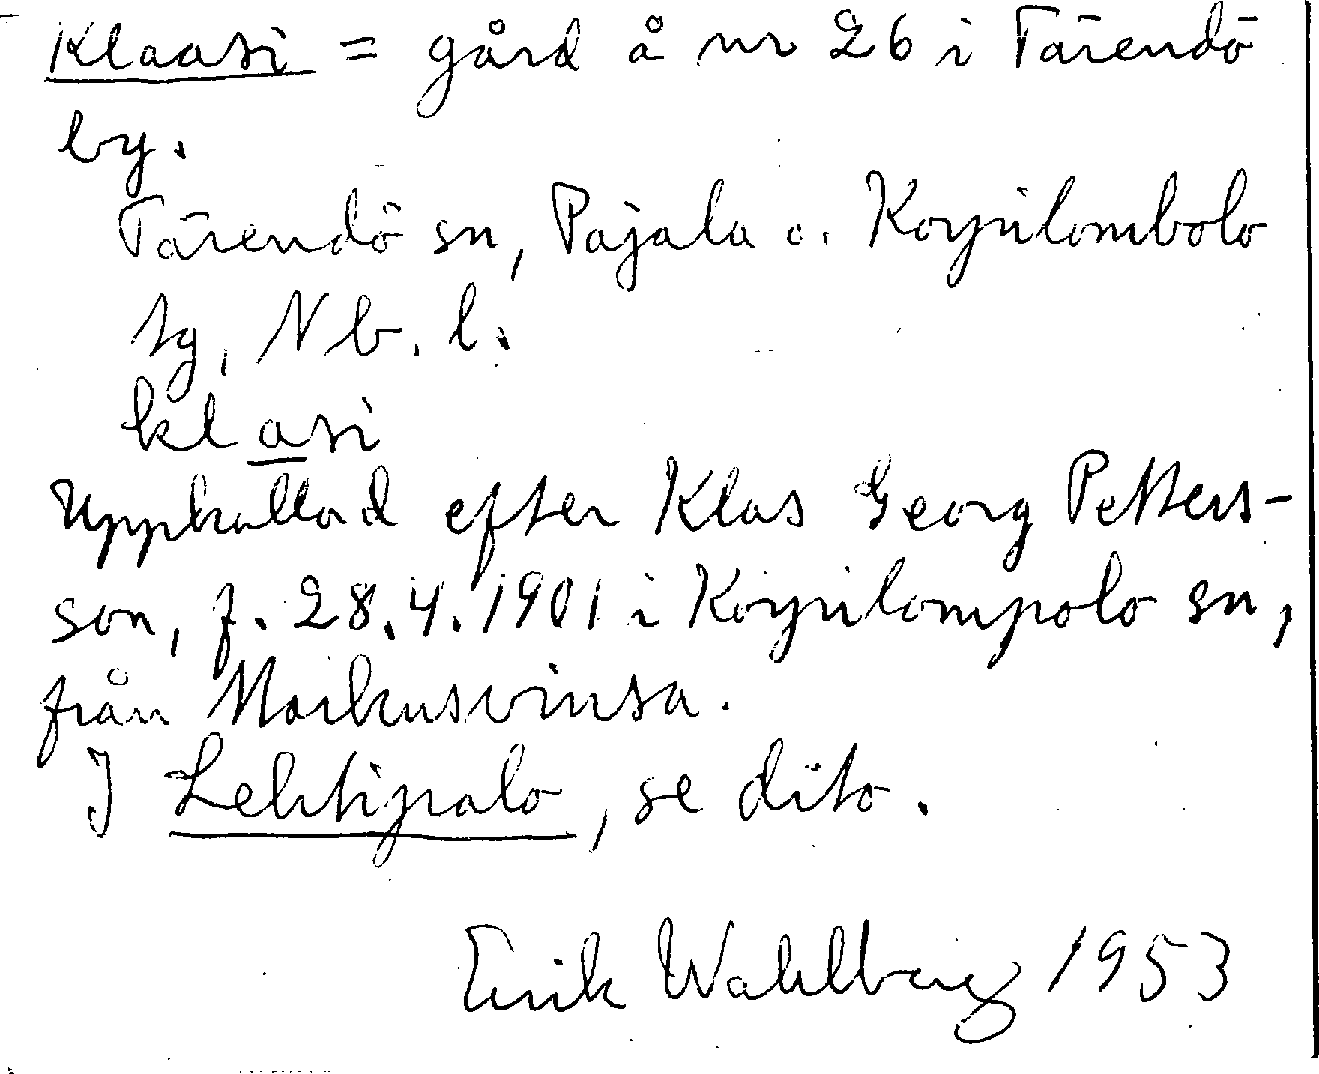 Klaasi = gård å nr 26 i Tärendö
by.
Tärendö sn, Pajala o. Korpilombolo
tg, Nb. l.
klasi
Uppkallad efter Klas Georg Petters-
son, f. 28.4.1901 i Korpilompolo sn,
från Markusvinsa.
I Lehtipalo, se dito.
Erik Wahlberg 1953